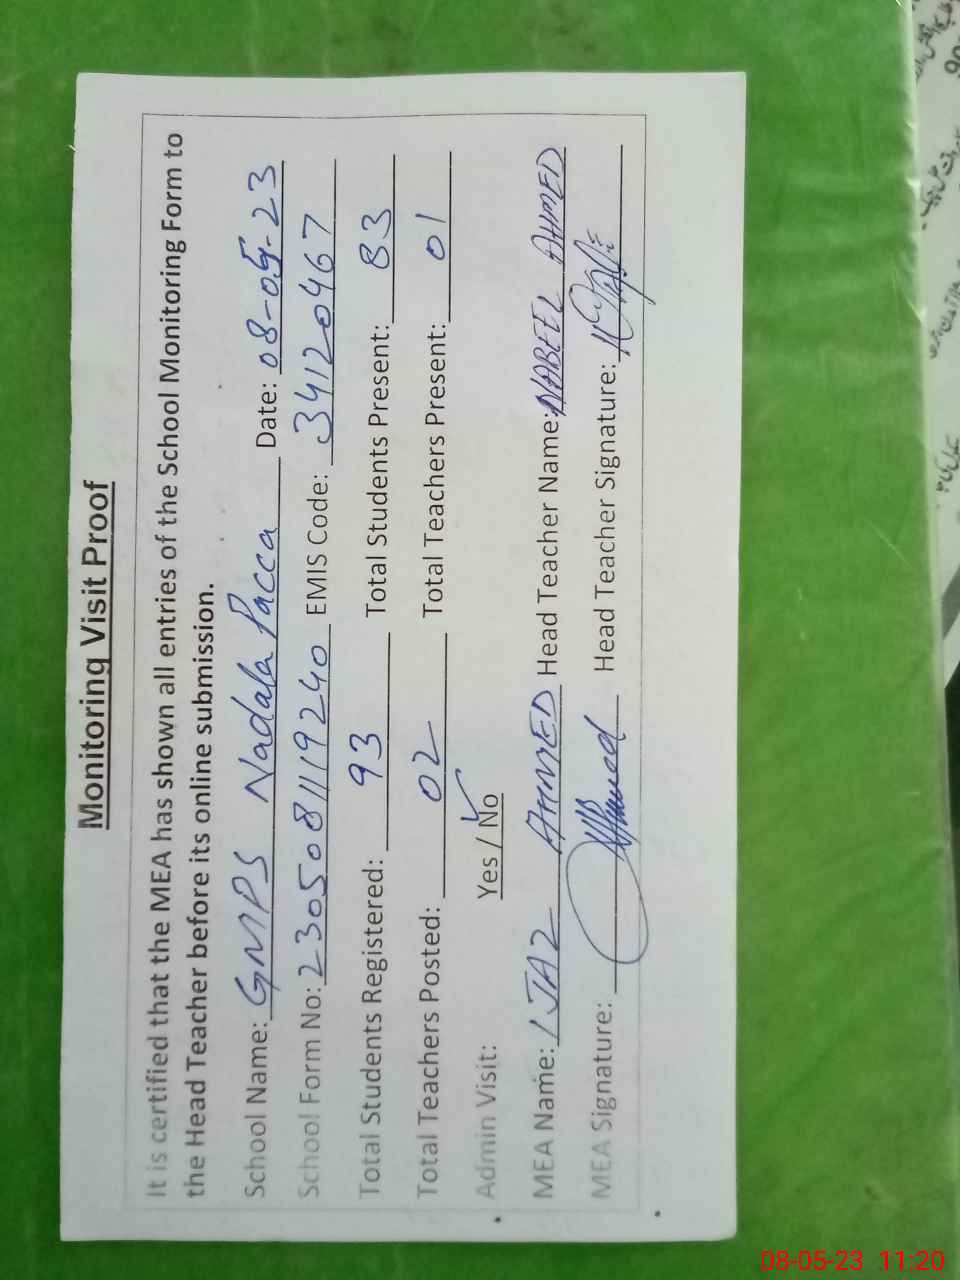 Monitoring Visit Proof
It is certified that the MEA has shown all entries of the School Monitoring Form to
the Head Teacher before its online submission.
School Name: GMPS Nadala Pacca Date: 08-05-23
School Form No: 23050811119240 EMIS Code: 34120467
Total Students Registered: 93 Total Students Present: 83
Total Teachers Posted: 02 Total Teachers Present: 01
Admin Visit: Yes / No ✓
MEA Name: IJAZ AHMED Head Teacher Name: NABEEL AHMED
MEA Signature: Head Teacher Signature:
08-05-23 11:20